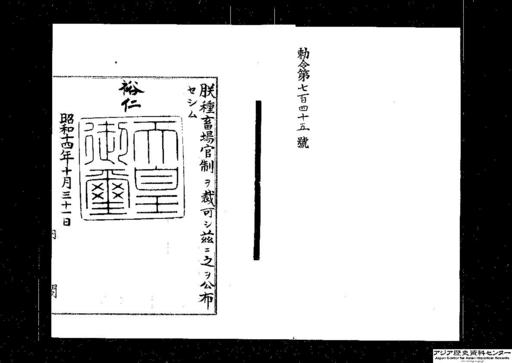 勅令第七百四十五號
朕種畜場官制ヲ裁可シ茲ニ之ヲ公布
セシム
裕仁
天皇
御璽
昭和十四年十月三十一日
内
閣
アジア歴史資料センター
Japan Center for Asian Historical Records